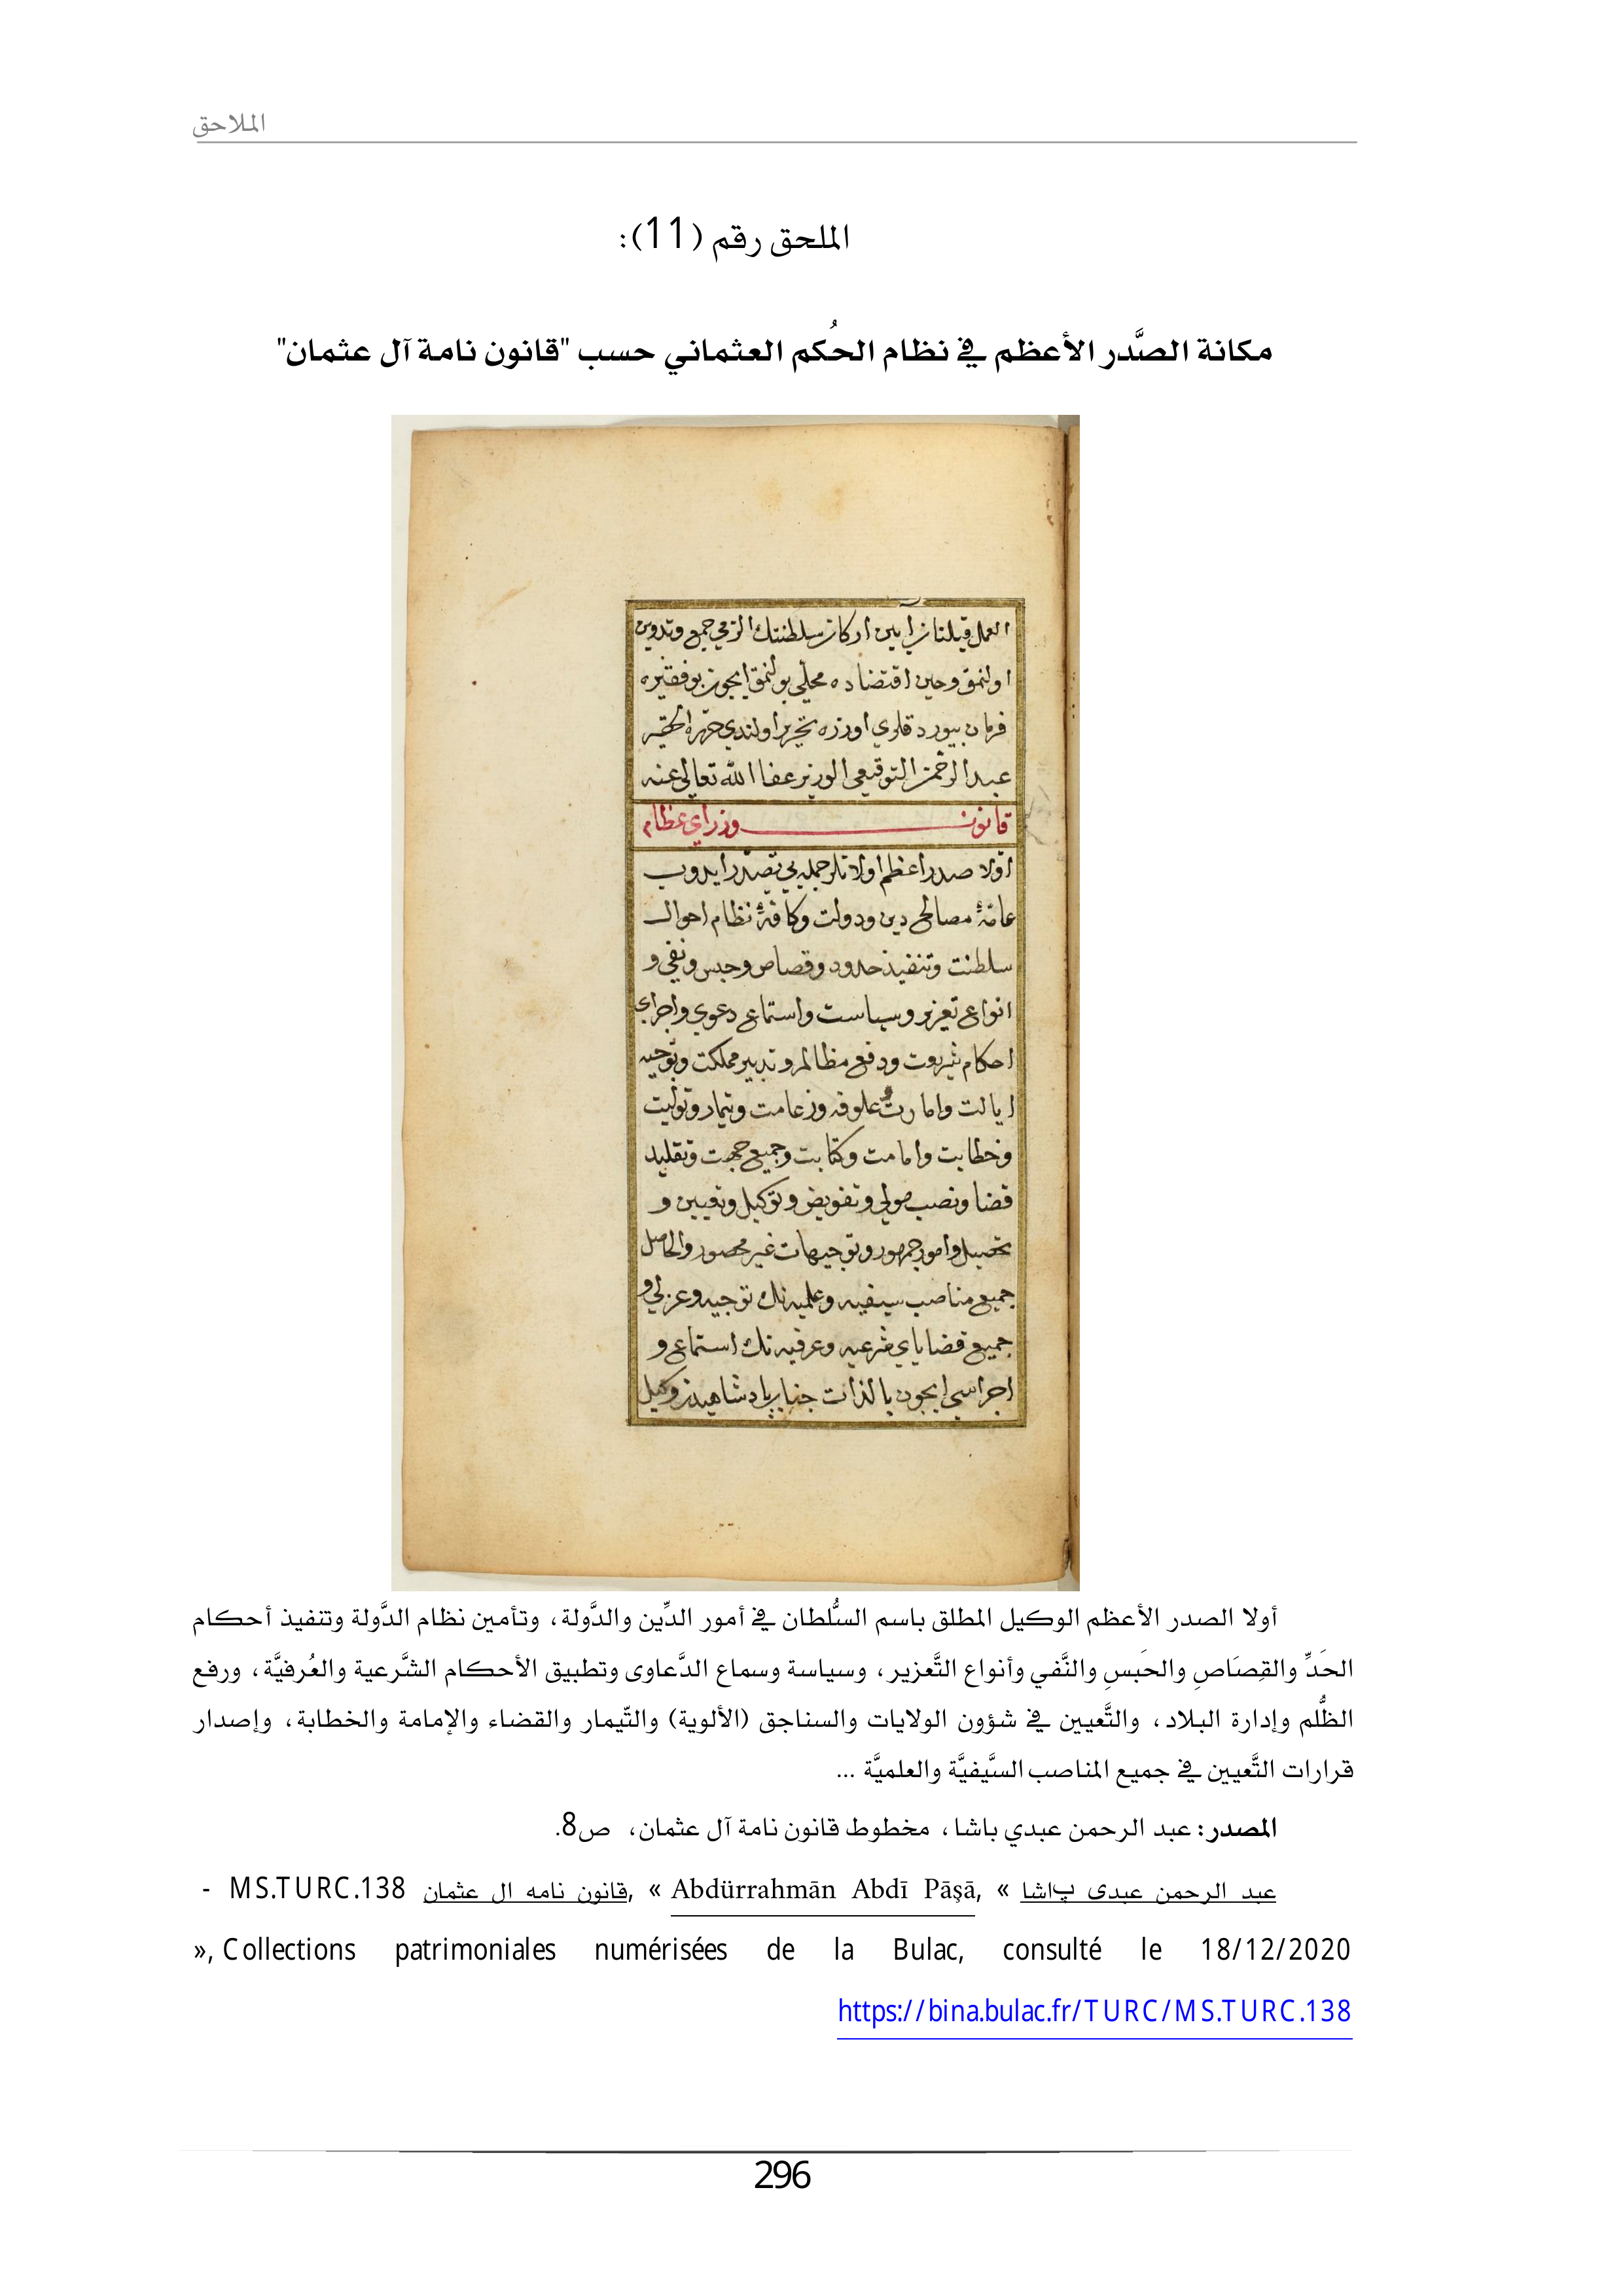 الملاحق
الملحق رقم (11):
مكانة الصَّدر الأعظم في نظام الحُكم العثماني حسب "قانون نامة آل عثمان"
العمل قيلنان آيين اركان سلطنتك الزمي جمع وتدوين
اولنمق وحين اقتضاده محلي بولنمق ايچون بو فقيره
فرمان بيوردقلري اوزره تحرير اولندي حرّره الحقير
عبد الرحمن التوقيعي الوزير عفا الله تعالى عنه
قانون وزراي عظام
اوّلا صدر اعظم اولانلر جمله يي تصدّر ايدوب
عامّهٔ مصالح دين ودولت وكافهٔ نظام احوال
سلطنت وتنفيذ حدود وقصاص وحبس ونفي و
انواع تعزير وسياست واستماع دعوي واجراي
احكام شريعت ودفع مظالم وتدبير مملكت وتوجيه
ايالت وامارت علوفه وزعامت وتيمار وتوليت
وخطابت وامامت وكتابت وجميع جهت وتقليد
قضا ونصب مولي وتفويض وتوكيل وتعيين و
تحصيل وامور جمهور وتوجيهات غير محصور والحاصل
جميع مناصب سيفيه وعلميه نك توجيه وعزلي و
جميع قضاياي شرعيه وعرفيه نك استماع و
اجراسي ايچون بالذات جناب پادشاهيدن وكيل
أولا الصدر الأعظم الوكيل المطلق باسم السُّلطان في أمور الدِّين والدَّولة، وتأمين نظام الدَّولة وتنفيذ أحكام
الحَدِّ والقِصَاصِ والحَبسِ والنَّفي وأنواع التَّعزير، وسياسة وسماع الدَّعاوى وتطبيق الأحكام الشَّرعية والعُرفيَّة، ورفع
الظُّلم وإدارة البلاد، والتَّعيين في شؤون الولايات والسناجق (الألوية) والتّيمار والقضاء والإمامة والخطابة، وإصدار
قرارات التَّعيين في جميع المناصب السيَّفيَّة والعلميَّة ...
المصدر: عبد الرحمن عبدي باشا، مخطوط قانون نامة آل عثمان، ص8.
عبد الرحمن عبدى پاشا » ,Abdürrahmān Abdī Pāşā » ,قانون نامه ال عثمان MS.TURC.138 -
», Collections patrimoniales numérisées de la Bulac, consulté le 18/12/2020
https://bina.bulac.fr/TURC/MS.TURC.138
296